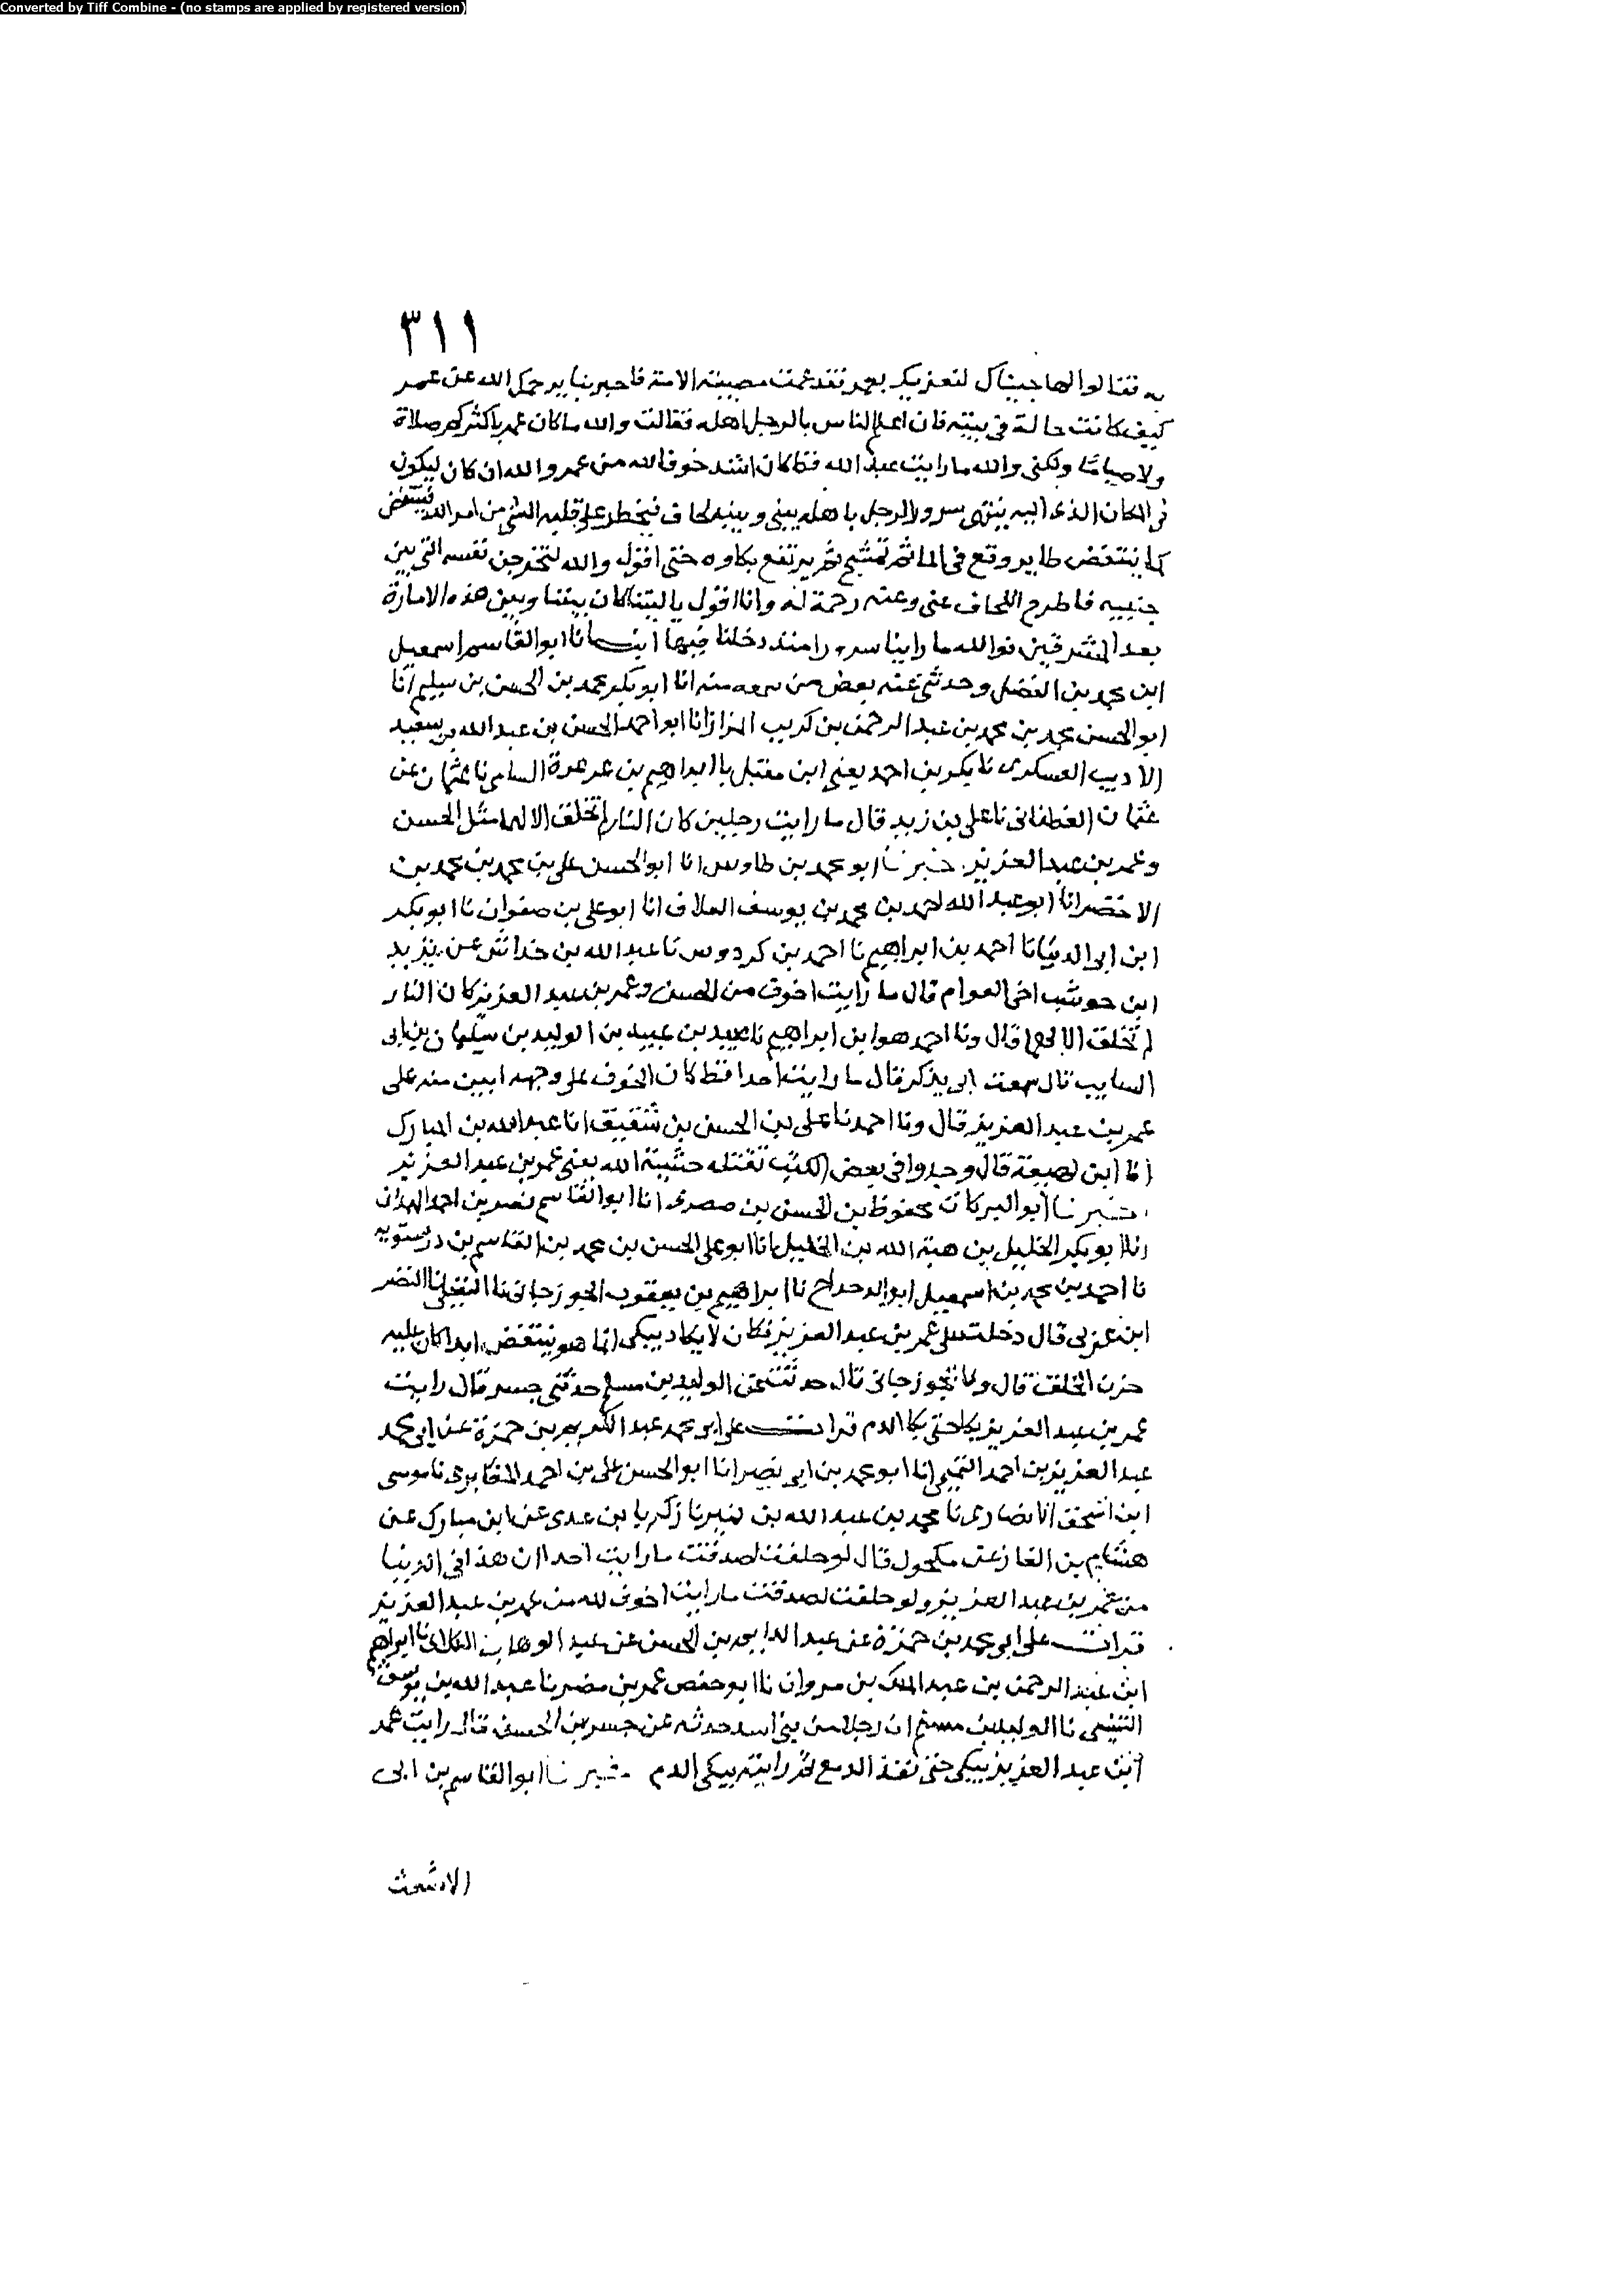 Converted by Tiff Combine - (no stamps are applied by registered version)
٣١١
به فقالوا لها جيناك لنعزيك بعمر فقد عمت مصيبته الامة فاخبرينا يرحمك الله عن عمر
كيف كانت حالة في بيته فان اعلم الناس بالرجل اهله فقالت والله ما كان عمر باكثركم صلاة
ولا صياما ولكني والله ما رايت عبدا لله قط كان اشد خوفا لله من عمر والله ان كان ليكون
في المكان الذي اليه ينتهي سرور الرجل باهله بيني وبينه لحاف فيخطر على قلبه الشي من امر الله فينتفض
كما ينتفض طاير وقع في الما ثم ينشج ثم يرتفع بكاوه حتى اقول والله لتخرجن نفسه التي بين
جنبيه فاطرح اللحاف عني وعنه رحمة له وانا اقول ياليتنا كان بيننا وبين هذه الامارة
بعد المشرقين فوالله ما راينا سرورا منذ دخلنا فيها انبانا ابو القاسم اسمعيل
ابن محمد بن الفضل وحدثني عنه بعض من سمعه منه انا ابو بكر محمد بن الحسن بن سليم انا
ابو الحسن محمد بن محمد بن عبد الرحمن بن كريب البزاز انا ابو احمد الحسن بن عبد الله بن سعيد
الاديب العسكري نا بكر بن احمد يعني ابن مقبل نا ابراهيم بن عرعرة السامي نا عثمان عن
عثمان الغطفاني نا علي بن زيد قال ما رايت رجلين كان النار لم تخلق الا لهما مثل الحسن
وعمر بن عبد العزيز خبرنا ابو محمد بن طاوس انا ابو الحسن علي بن محمد بن محمد بن
الاخضر انا ابو عبد الله احمد بن محمد بن يوسف العلاف انا ابو علي بن صفوان نا ابو بكر
ابن ابي الدنيا نا احمد بن ابراهيم نا احمد بن كردوس نا عبد الله بن خداش عن يزيد
ابن حوشب اخي العوام قال ما رايت اخوف من الحسن وعمر بن عبد العزيز كان النار
لم تخلق الا لهما قال ونا احمد هو ابن ابراهيم نا عبيد بن الوليد بن سليمان بن ابي
السايب قال سمعت ابي يذكر قال ما رايت احدا قط كان الخوف على وجهه ابين منه على
عمر بن عبد العزيز قال ونا احمد نا علي بن الحسن بن شقيق انا عبد الله بن المبارك
انا ابن لهيعة قال وجدوا في بعض الكتب تقتله خشية الله يعني عمر بن عبد العزيز
خبرنا ابو البركات محفوظ بن الحسن بن صصرى انا ابو القاسم نصر بن احمد الهمداني
انا ابو بكر الخليل بن هبة الله بن الخليل انا ابو علي الحسن بن محمد بن القاسم بن درستويه
نا احمد بن محمد بن اسمعيل ابو الدحداح نا ابراهيم بن يعقوب الجوزجاني نا النفيلي نا النضر
ابن عربي قال دخلت على عمر بن عبد العزيز فكان لا يكاد يبكي انما هو ينتفض ابدا كان عليه
حزن الخلق قال ونا الجوزجاني قال حدثت عن الوليد بن مسلم حدثني جسر قال رايت
عمر بن عبد العزيز بكا حتى بكا الدم قرات على ابو محمد عبد الكريم بن حمزة عن ابي محمد
عبد العزيز بن احمد التميمي انا ابو محمد بن ابي نصر انا ابو الحسن علي بن احمد المقابري نا موسى
ابن اسحق الانصاري نا محمد بن عبد الله بن نمير نا زكريا بن عدي عن ابن مبارك عن
هشام بن الغاز عن مكحول قال لو حلفت لصدقت ما رايت احدا ازهد في الدنيا
من عمر بن عبد العزيز ولو حلفت لصدقت ما رايت اخوف لله من عمر بن عبد العزيز
قرات على ابي محمد بن حمزة عن عبد الدايم بن الحسن عن عبد الوهاب الكلابي نا ابراهيم
ابن عبد الرحمن بن عبد الملك بن مروان نا ابو حفص عمر بن مضر نا عبد الله بن يوسف
التنيسي نا الوليد بن مسلم ان رجلا من بني اسد حدثه عن جسر بن الحسن قال رايت عمر
ابن عبد العزيز يبكي حتى نفذ الدمع ثم رايته يبكي الدم خبرنا ابو القاسم بن ابي
الاشعث